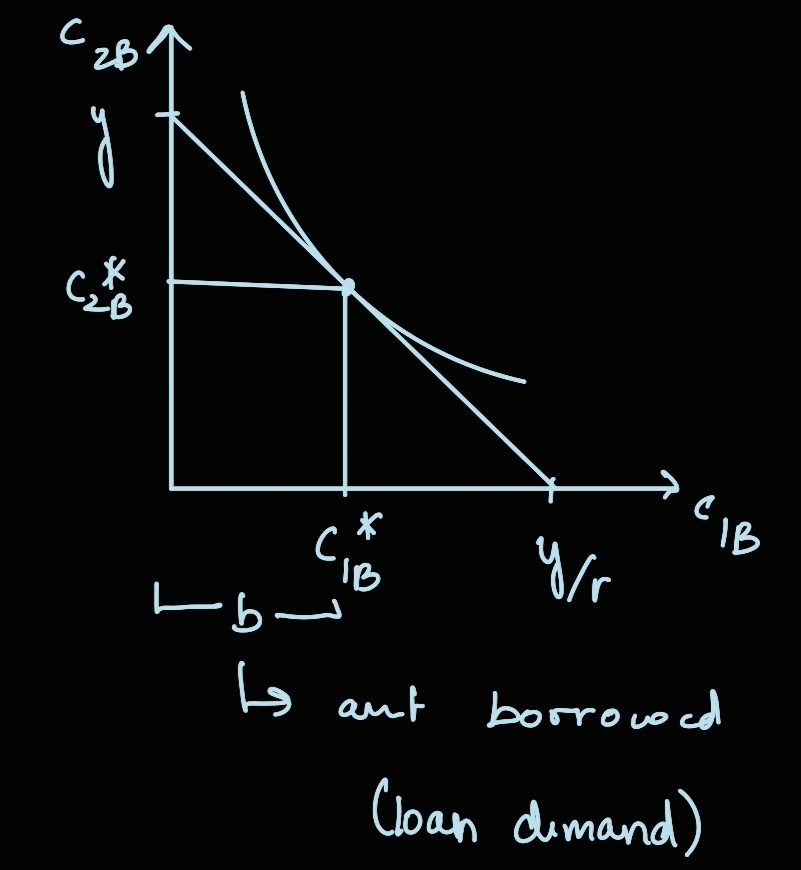 C₂B
y
C₂B*
C₁B
C₁B*
y/r
b
↳ amt borrowed
(loan dimand)